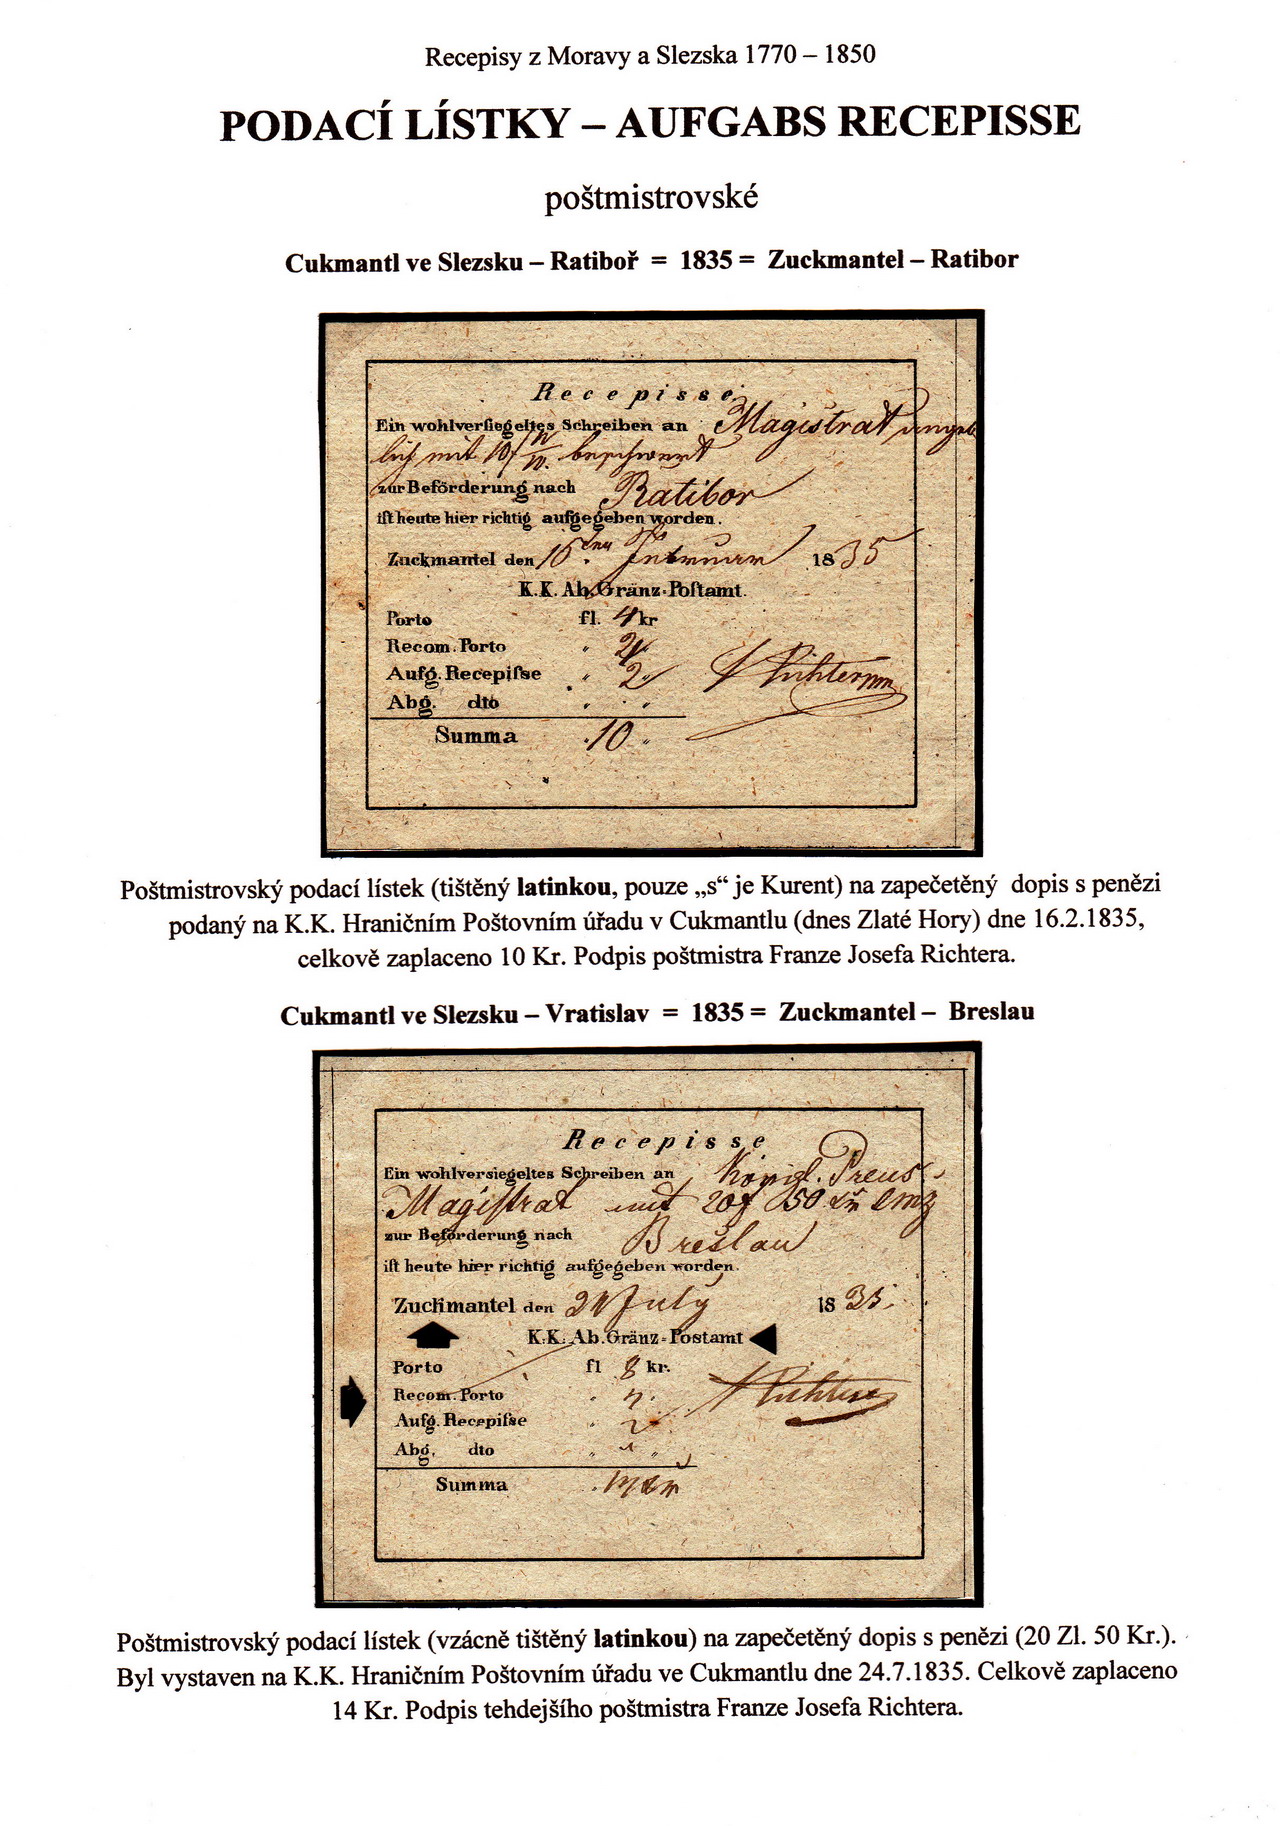 Recepisy z Moravy a Slezska 1770 – 1850
PODACÍ LÍSTKY – AUFGABS RECEPISSE
poštmistrovské
Cukmantl ve Slezsku – Ratiboř = 1835 = Zuckmantel – Ratibor
Recepisse
Ein wohlverſiegeltes Schreiben an Magistrat angeb
lich mit 10f beschwert
zur Beförderung nach Ratibor
iſt heute hier richtig aufgegeben worden.
Zuckmantel den 16ten Februar 1835
K.K. Ab. Gränz-Poſtamt.
Porto fl. 4 kr
Recom. Porto " 4
Aufg. Recepiſse " 2
Abg. dto " "
Summa 10 "
Richter
Poštmistrovský podací lístek (tištěný latinkou, pouze „s“ je Kurent) na zapečetěný dopis s penězi
podaný na K.K. Hraničním Poštovním úřadu v Cukmantlu (dnes Zlaté Hory) dne 16.2.1835,
celkově zaplaceno 10 Kr. Podpis poštmistra Franze Josefa Richtera.
Cukmantl ve Slezsku – Vratislav = 1835 = Zuckmantel – Breslau
Recepisse
Ein wohlversiegeltes Schreiben an Königl. Preus.
Magistrat mit 20f 50 xr CMz
zur Beförderung nach Breslau
iſt heute hier richtig aufgegeben worden.
Zuckmantel den 24 July 1835.
K.K. Ab. Gränz-Postamt
Porto fl 8 kr.
Recom. Porto " 4
Aufg. Recepiſse " 2
Abg. dto " "
Summa 14 xr
Richter
Poštmistrovský podací lístek (vzácně tištěný latinkou) na zapečetěný dopis s penězi (20 Zl. 50 Kr.).
Byl vystaven na K.K. Hraničním Poštovním úřadu ve Cukmantlu dne 24.7.1835. Celkově zaplaceno
14 Kr. Podpis tehdejšího poštmistra Franze Josefa Richtera.